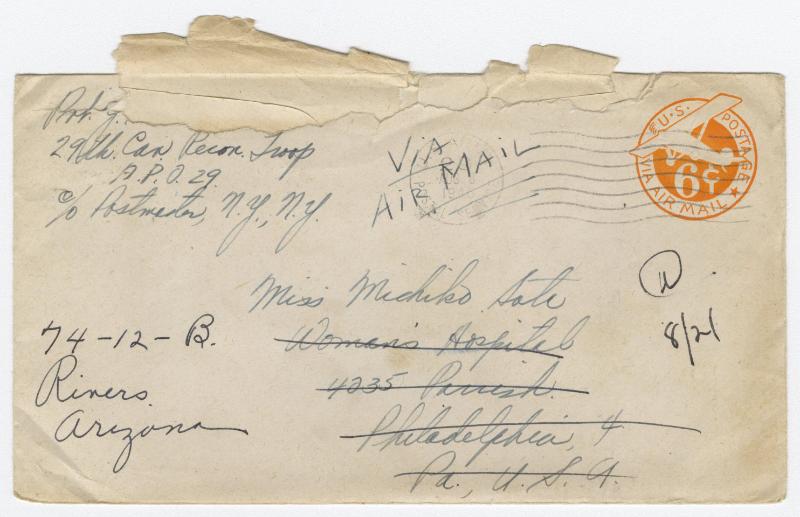 29th. Cav. Recon. Troop
A.P.O. 29.
c/o Postmaster, N.Y., N.Y.
VIA
AIR MAIL
U.S. POSTAGE
6¢
VIA AIR MAIL
Miss Michiko Sate
Woman's Hospital
4235 Parrish
Philadelphia, 4
Pa., U.S.A.
74-12-B.
Rivers
Arizona
8/21